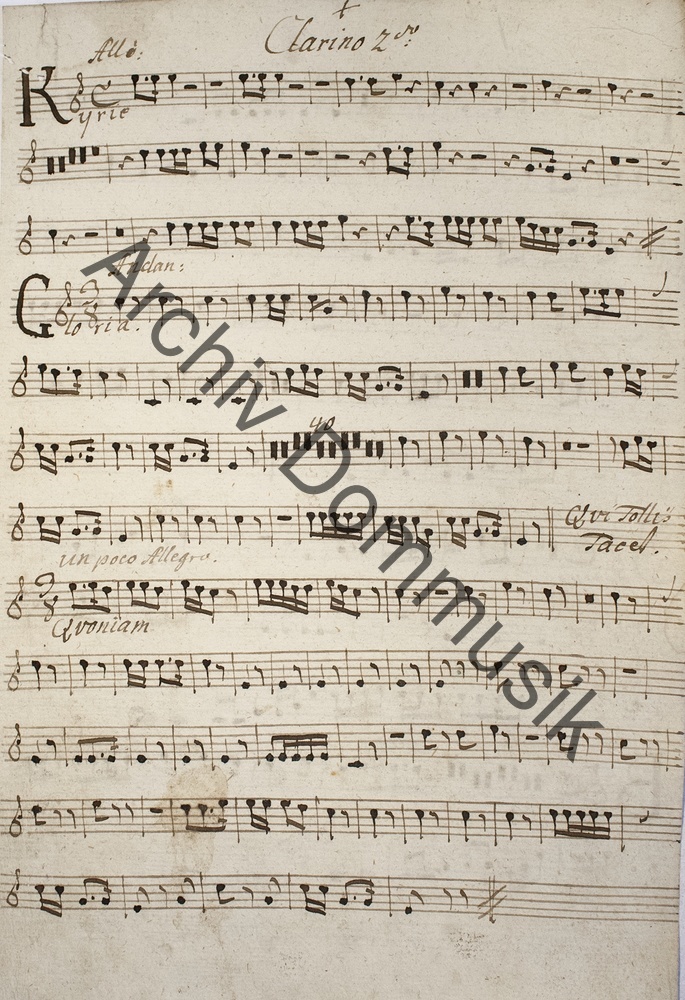 Clarino 2do
Allo:
Kyrie
Andan:
Gloria.
40
Qui Tollis
Tacet.
un poco Allegro.
Qvoniam
Archiv Dommusik